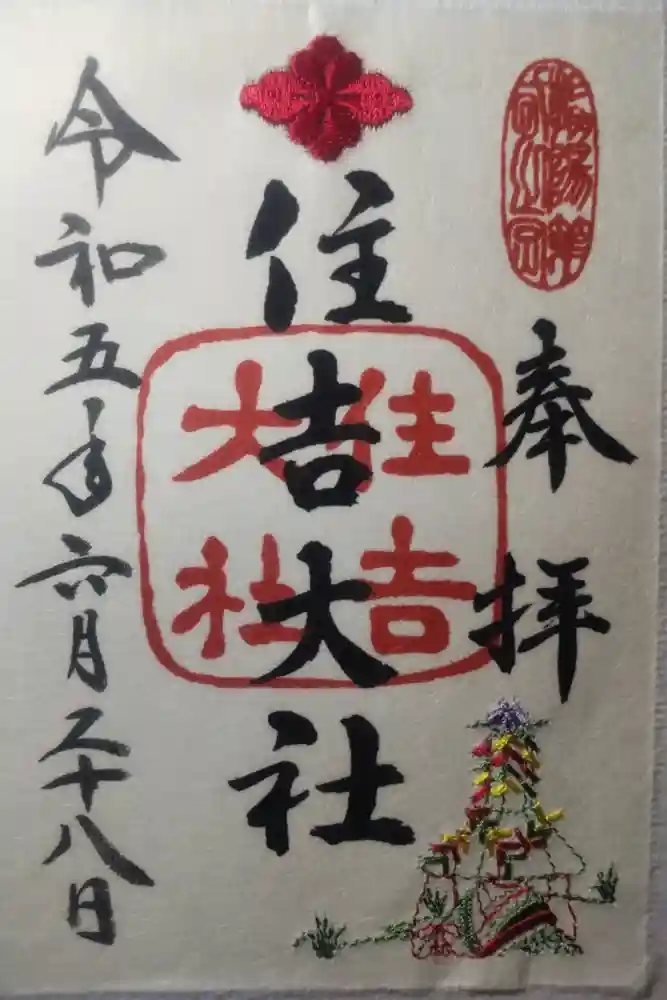 奉拝
住吉大社
住吉大社
令和五年六月二十八日